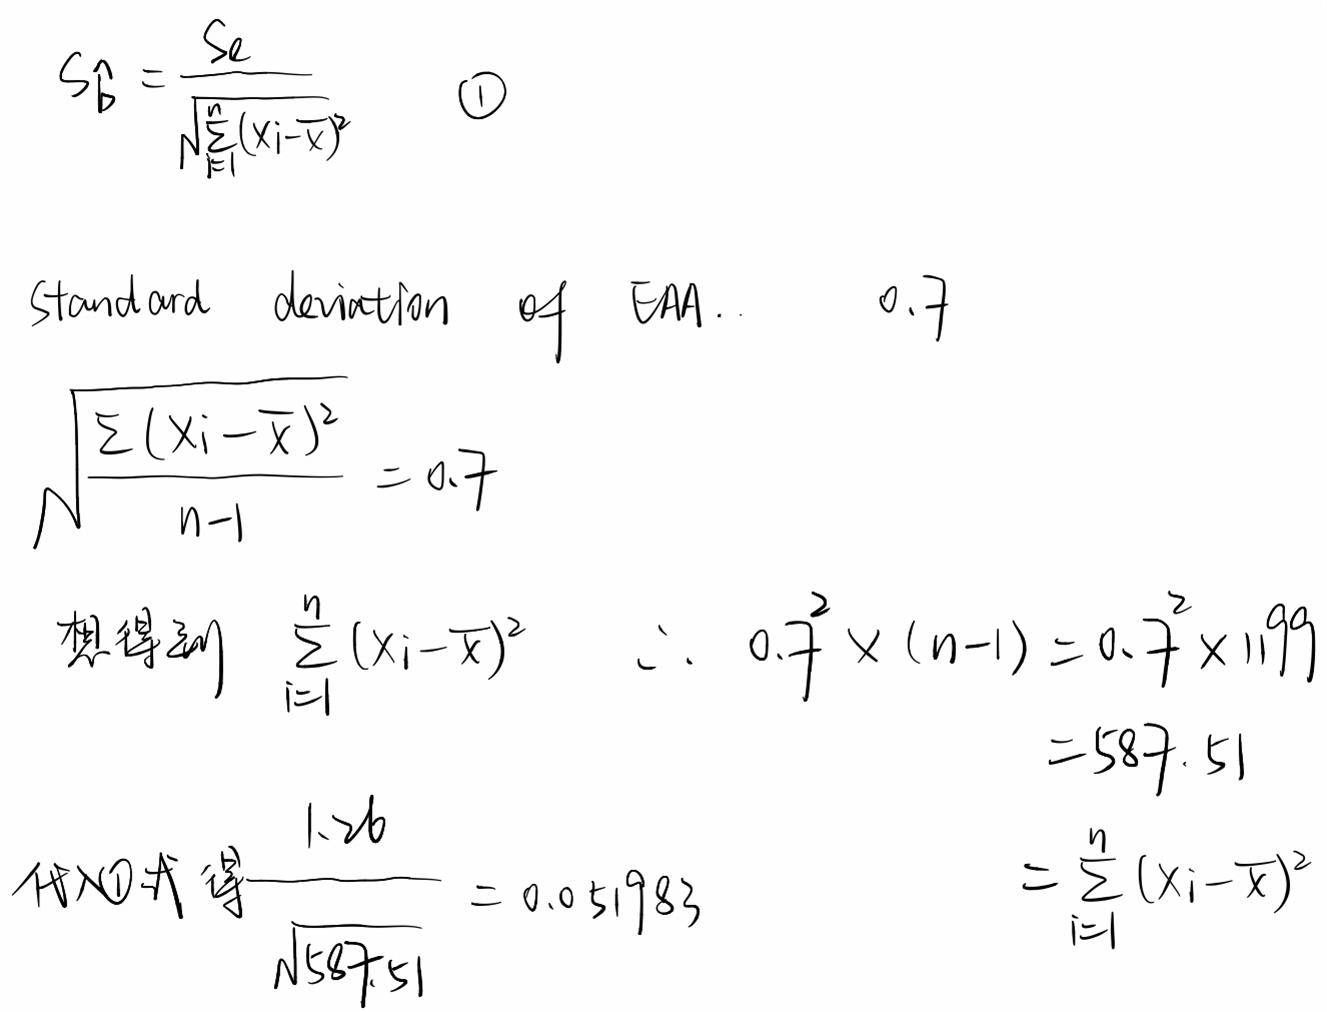 S_b̂ = Se / √(∑_{i=1}^{n} (Xi - X̄)²) ①
Standard deviation of EAA.. 0.7
√(∑(Xi - X̄)² / (n-1)) = 0.7
想得到 ∑_{i=1}^{n} (Xi - X̄)² ∴ 0.7² × (n-1) = 0.7² × 1199
= 587.51
= ∑_{i=1}^{n} (Xi - X̄)²
代入①式得 1.26 / √587.51 = 0.051983